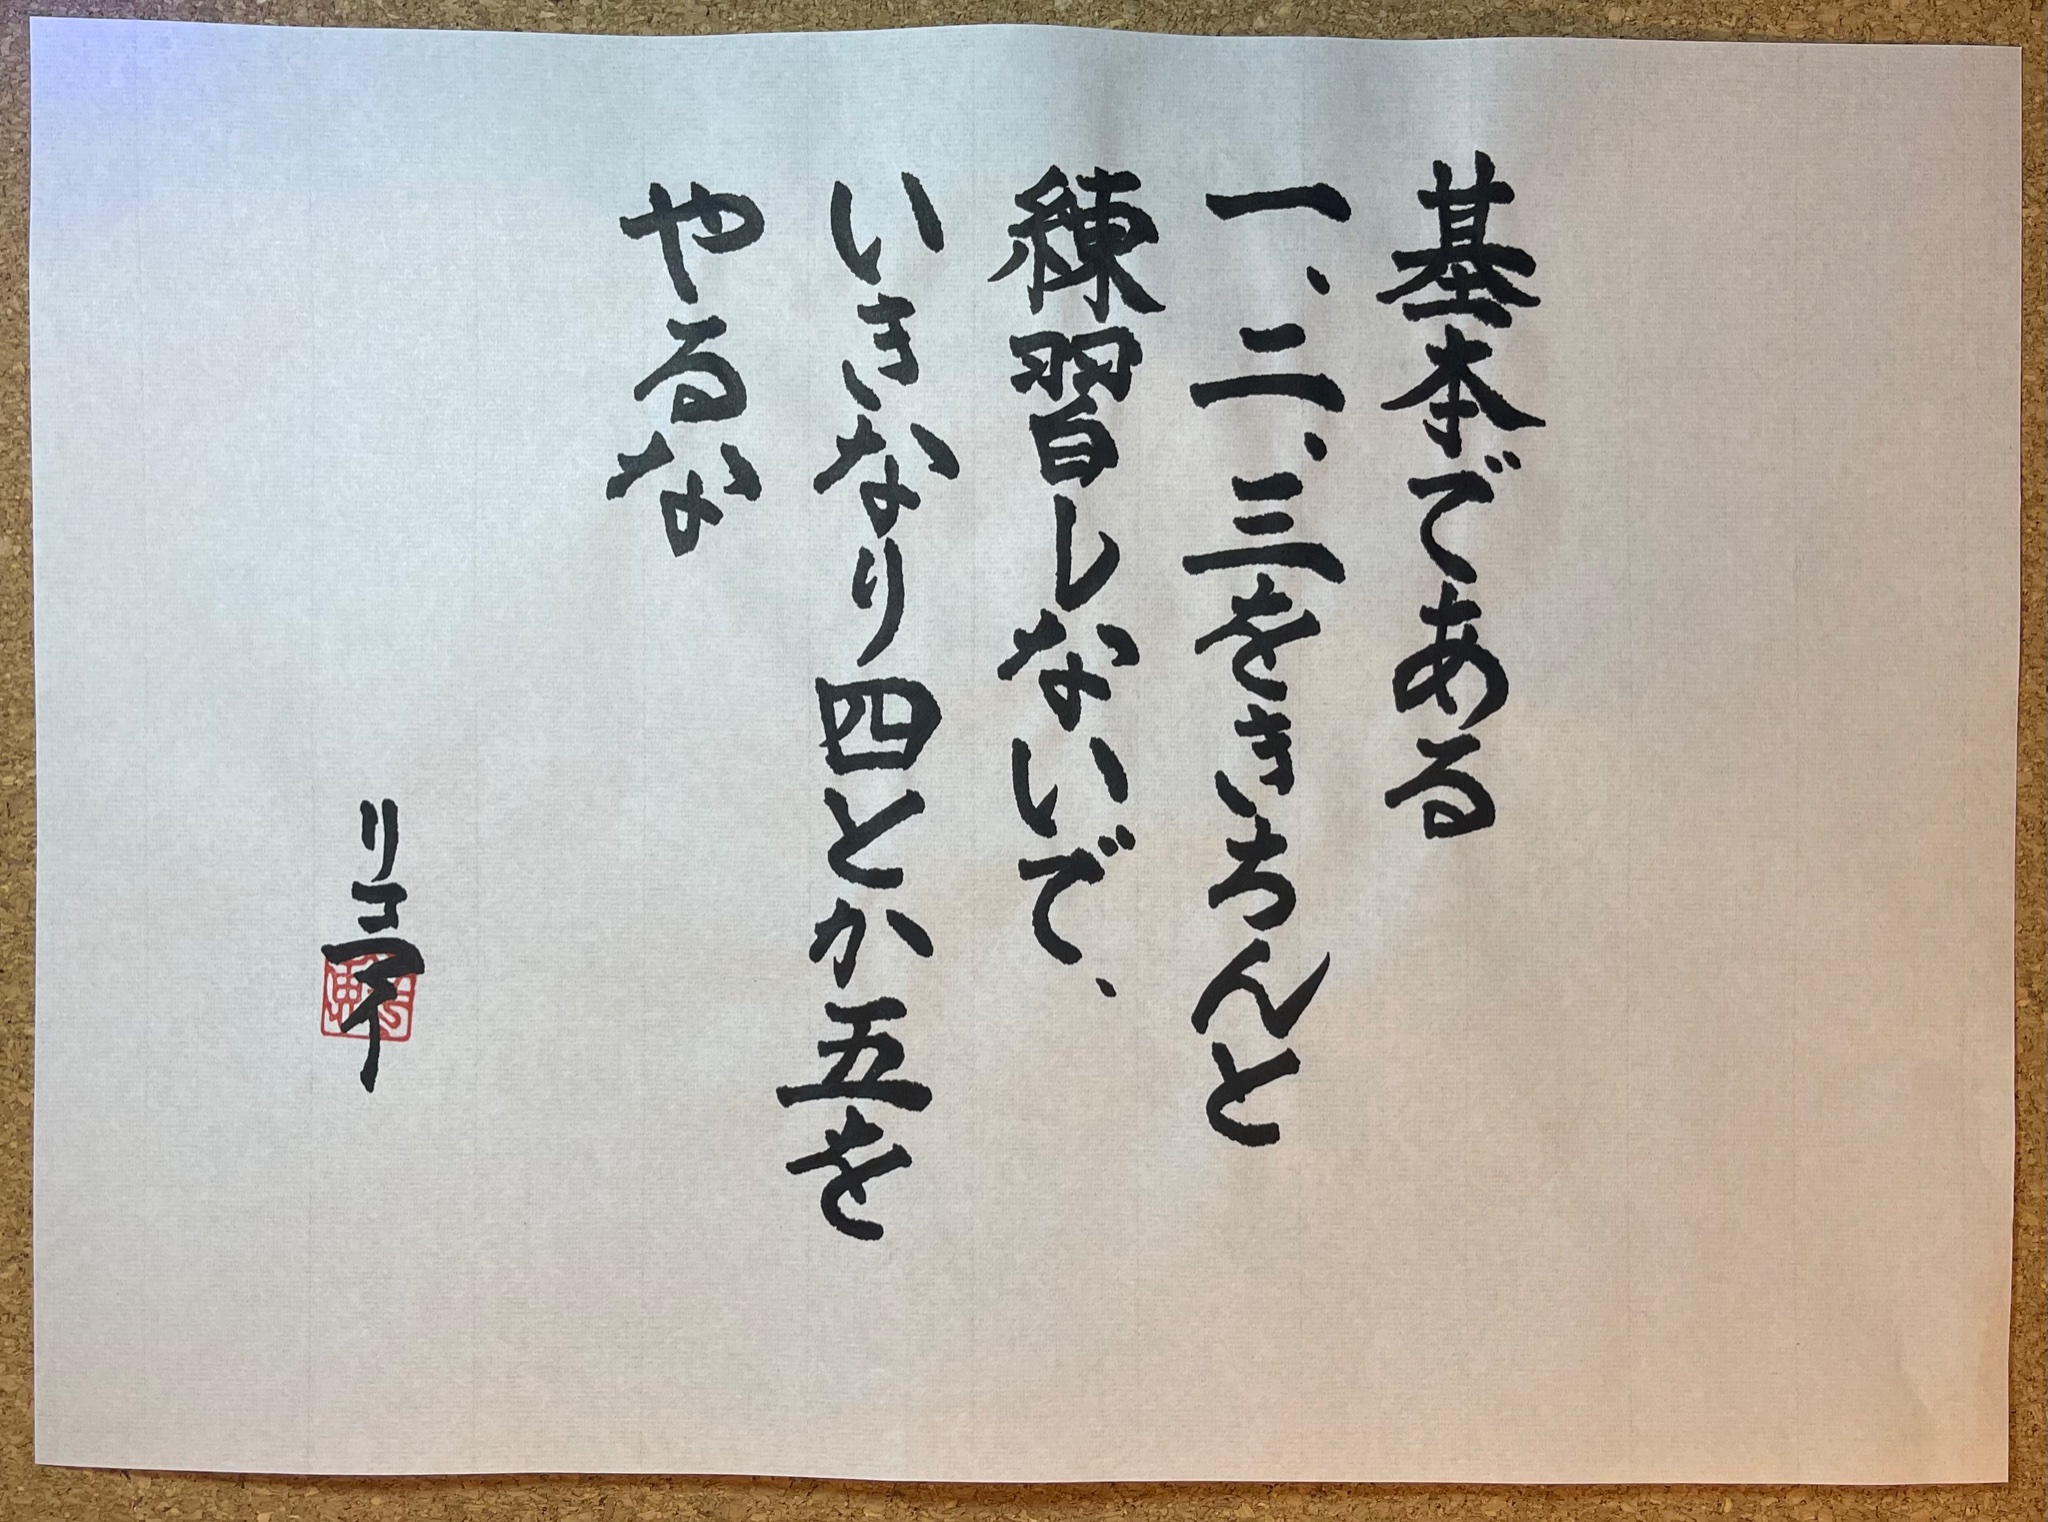 基本である
一、二、三をきちんと
練習しないで、
いきなり四とか五を
やるな
リコ